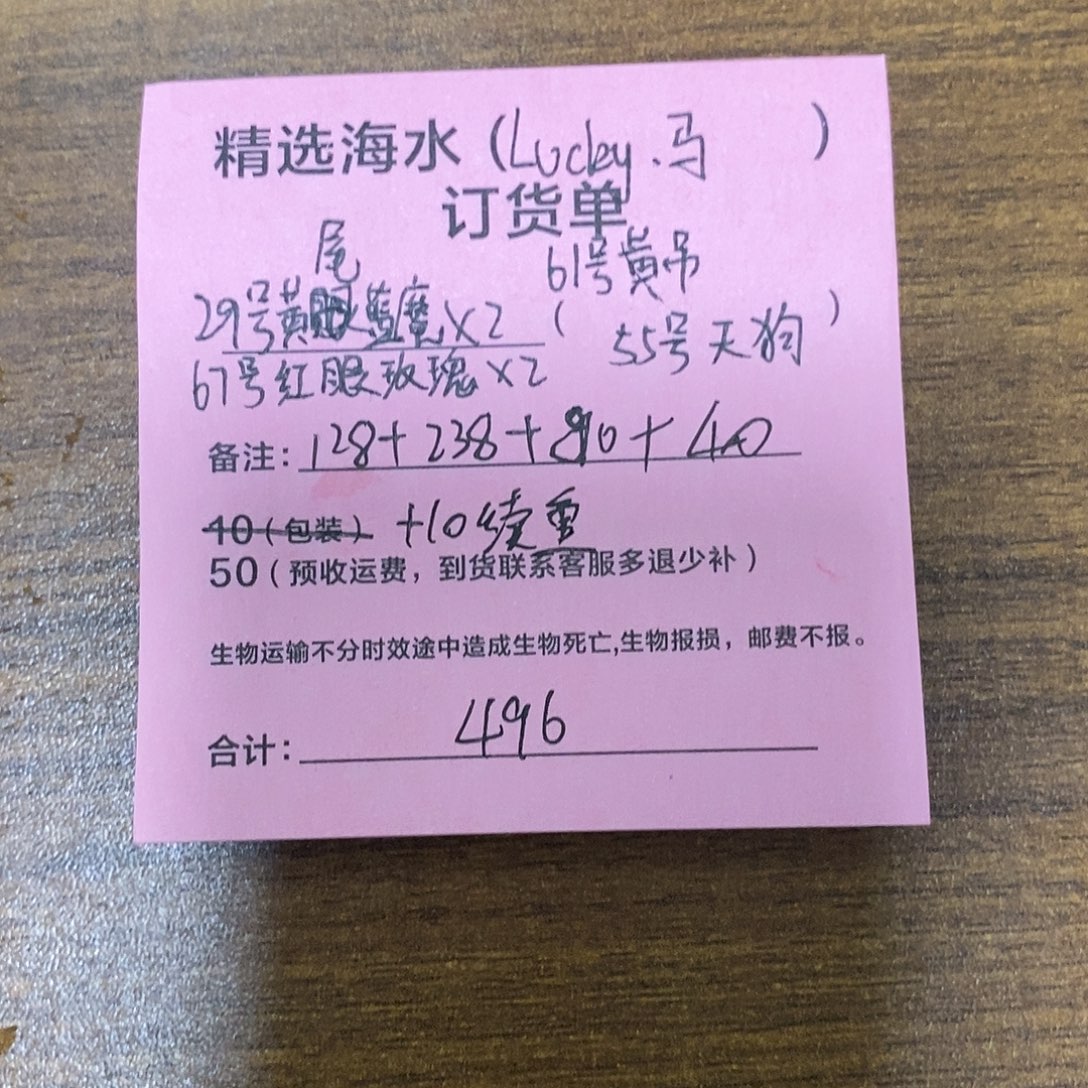 精选海水（Lucky.马）
订货单
尾 61号黄吊
29号黄蓝魔×2（55号天狗）
67号红眼玫瑰×2
备注：128+238+80+40
10（包装）+10续重
50（预收运费，到货联系客服多退少补）
生物运输不分时效途中造成生物死亡,生物报损，邮费不报。
合计：496